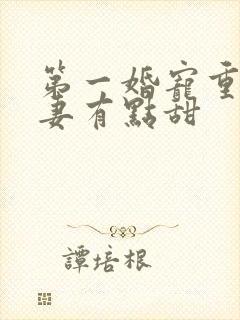 第一婚寵重
妻有點甜
譚培根